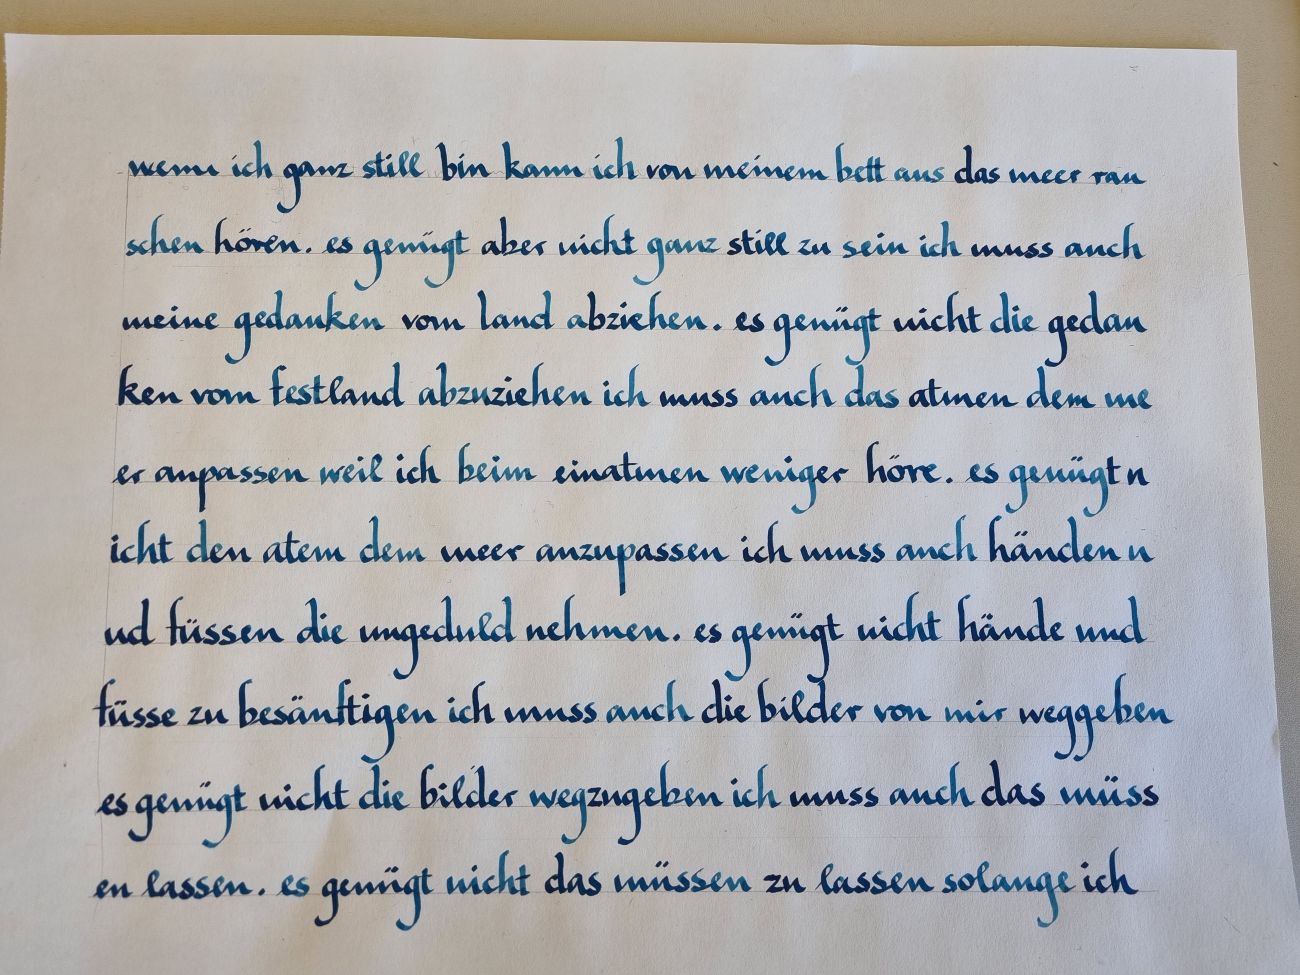 wenn ich ganz still bin kann ich von meinem bett aus das meer rau
schen hören. es genügt aber nicht ganz still zu sein ich muss auch
meine gedanken vom land abziehen. es genügt nicht die gedan
ken vom festland abzuziehen ich muss auch das atmen dem me
er anpassen weil ich beim einatmen weniger höre. es genügt n
icht den atem dem meer anzupassen ich muss auch händen u
nd füssen die ungeduld nehmen. es genügt nicht hände und
füsse zu besänftigen ich muss auch die bilder von mir weggeben
es genügt nicht die bilder wegzugeben ich muss auch das müss
en lassen. es genügt nicht das müssen zu lassen solange ich